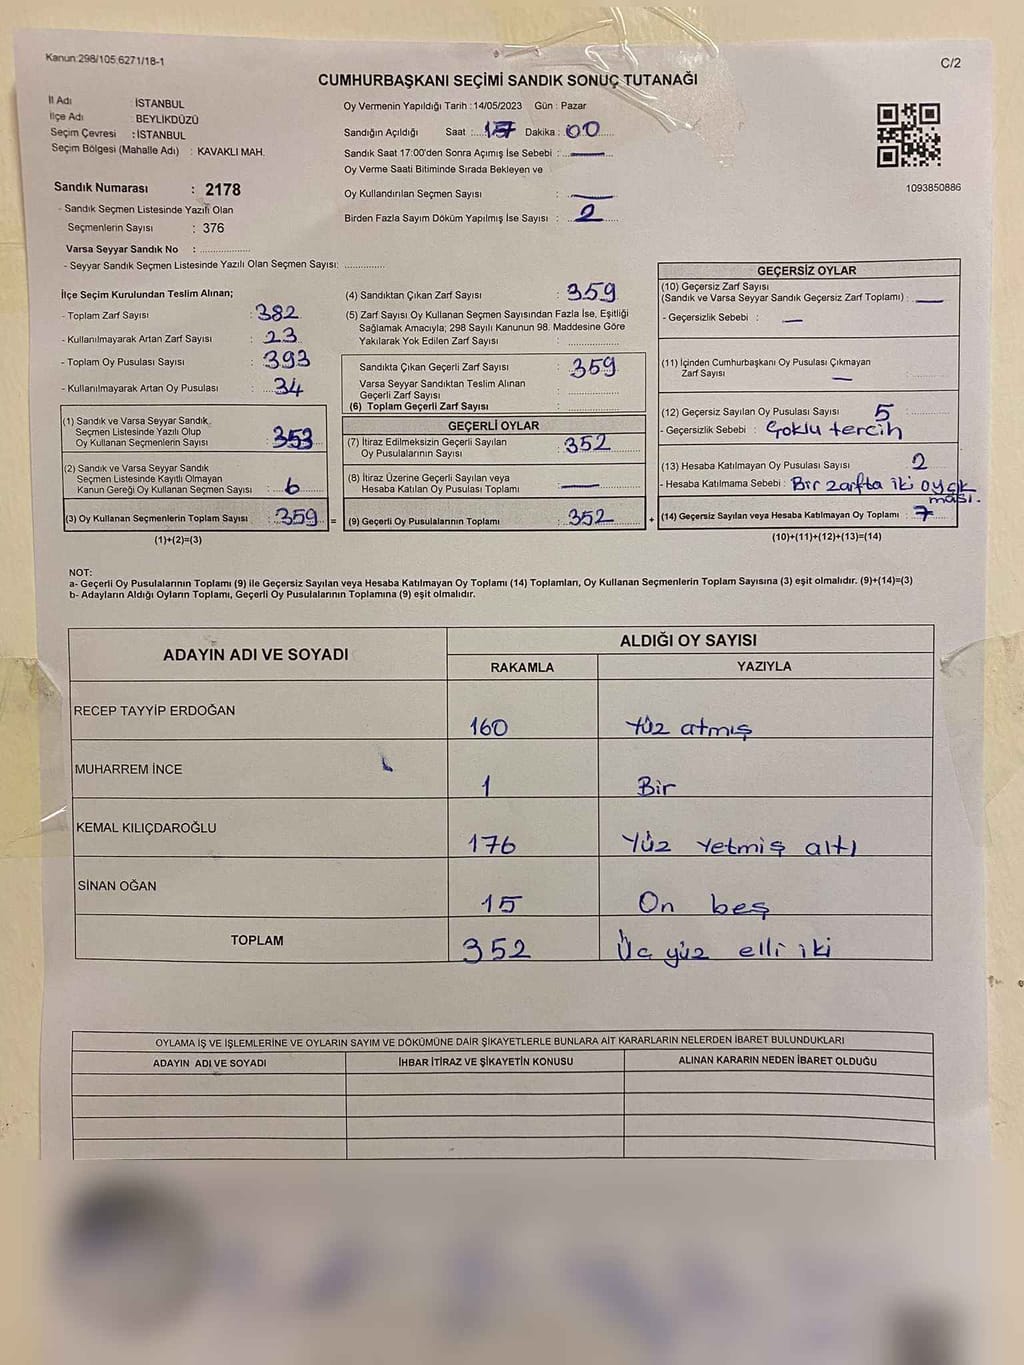 Kanun:298/105,6271/18-1
C/2
CUMHURBAŞKANI SEÇİMİ SANDIK SONUÇ TUTANAĞI
İl Adı : İSTANBUL
İlçe Adı : BEYLİKDÜZÜ
Seçim Çevresi : İSTANBUL
Seçim Bölgesi (Mahalle Adı) : KAVAKLI MAH.
Sandık Numarası : 2178
- Sandık Seçmen Listesinde Yazılı Olan
Seçmenlerin Sayısı : 376
Varsa Seyyar Sandık No : ..................
- Seyyar Sandık Seçmen Listesinde Yazılı Olan Seçmen Sayısı: ..............
Oy Vermenin Yapıldığı Tarih :14/05/2023 Gün : Pazar
Sandığın Açıldığı Saat : 17 Dakika : 00
Sandık Saat 17:00'den Sonra Açımış İse Sebebi : —
Oy Verme Saati Bitiminde Sırada Bekleyen ve
Oy Kullandırılan Seçmen Sayısı : —
Birden Fazla Sayım Döküm Yapılmış İse Sayısı : 2
1093850886
İlçe Seçim Kurulundan Teslim Alınan;
- Toplam Zarf Sayısı : 382
- Kullanılmayarak Artan Zarf Sayısı : 23
- Toplam Oy Pusulası Sayısı : 393
- Kullanılmayarak Artan Oy Pusulası : 34
(1) Sandık ve Varsa Seyyar Sandık
Seçmen Listesinde Yazılı Olup
Oy Kullanan Seçmenlerin Sayısı : 353
(2) Sandık ve Varsa Seyyar Sandık
Seçmen Listesinde Kayıtlı Olmayan
Kanun Gereği Oy Kullanan Seçmen Sayısı : 6
(3) Oy Kullanan Seçmenlerin Toplam Sayısı : 359 =
(1)+(2)=(3)
(4) Sandıktan Çıkan Zarf Sayısı : 359
(5) Zarf Sayısı Oy Kullanan Seçmen Sayısından Fazla İse, Eşitliği
Sağlamak Amacıyla; 298 Sayılı Kanunun 98. Maddesine Göre
Yakılarak Yok Edilen Zarf Sayısı : ..............
Sandıkta Çıkan Geçerli Zarf Sayısı : 359
Varsa Seyyar Sandıktan Teslim Alınan
Geçerli Zarf Sayısı : ..............
(6) Toplam Geçerli Zarf Sayısı : ..............
GEÇERLİ OYLAR
(7) İtiraz Edilmeksizin Geçerli Sayılan
Oy Pusulalarının Sayısı : 352
(8) İtiraz Üzerine Geçerli Sayılan veya
Hesaba Katılan Oy Pusulası Toplamı : —
(9) Geçerli Oy Pusulalarının Toplamı : 352 +
GEÇERSİZ OYLAR
(10) Geçersiz Zarf Sayısı
(Sandık ve Varsa Seyyar Sandık Geçersiz Zarf Toplamı) : —
- Geçersizlik Sebebi : —
(11) İçinden Cumhurbaşkanı Oy Pusulası Çıkmayan
Zarf Sayısı —
(12) Geçersiz Sayılan Oy Pusulası Sayısı 5
- Geçersizlik Sebebi : Çoklu tercih
(13) Hesaba Katılmayan Oy Pusulası Sayısı 2
- Hesaba Katılmama Sebebi : Bir zarfta iki oy çık
ması.
(14) Geçersiz Sayılan veya Hesaba Katılmayan Oy Toplamı : 7
(10)+(11)+(12)+(13)=(14)
NOT:
a- Geçerli Oy Pusulalarının Toplamı (9) ile Geçersiz Sayılan veya Hesaba Katılmayan Oy Toplamı (14) Toplamları, Oy Kullanan Seçmenlerin Toplam Sayısına (3) eşit olmalıdır. (9)+(14)=(3)
b- Adayların Aldığı Oyların Toplamı, Geçerli Oy Pusulalarının Toplamına (9) eşit olmalıdır.
ADAYIN ADI VE SOYADI
ALDIĞI OY SAYISI
RAKAMLA YAZIYLA
RECEP TAYYİP ERDOĞAN 160 Yüz atmış
MUHARREM İNCE 1 Bir
KEMAL KILIÇDAROĞLU 176 Yüz Yetmiş altı
SİNAN OĞAN 15 On beş
TOPLAM 352 Üç yüz elli iki
OYLAMA İŞ VE İŞLEMLERİNE VE OYLARIN SAYIM VE DÖKÜMÜNE DAİR ŞİKAYETLERLE BUNLARA AİT KARARLARIN NELERDEN İBARET BULUNDUKLARI
ADAYIN ADI VE SOYADI İHBAR İTİRAZ VE ŞİKAYETİN KONUSU ALINAN KARARIN NEDEN İBARET OLDUĞU